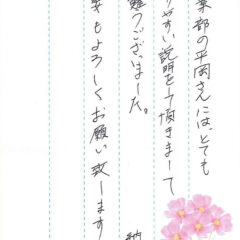 業部の平岡さんには、とても
りやすい説明をして頂きまして
難うございました。
もよろしくお願い致します
納